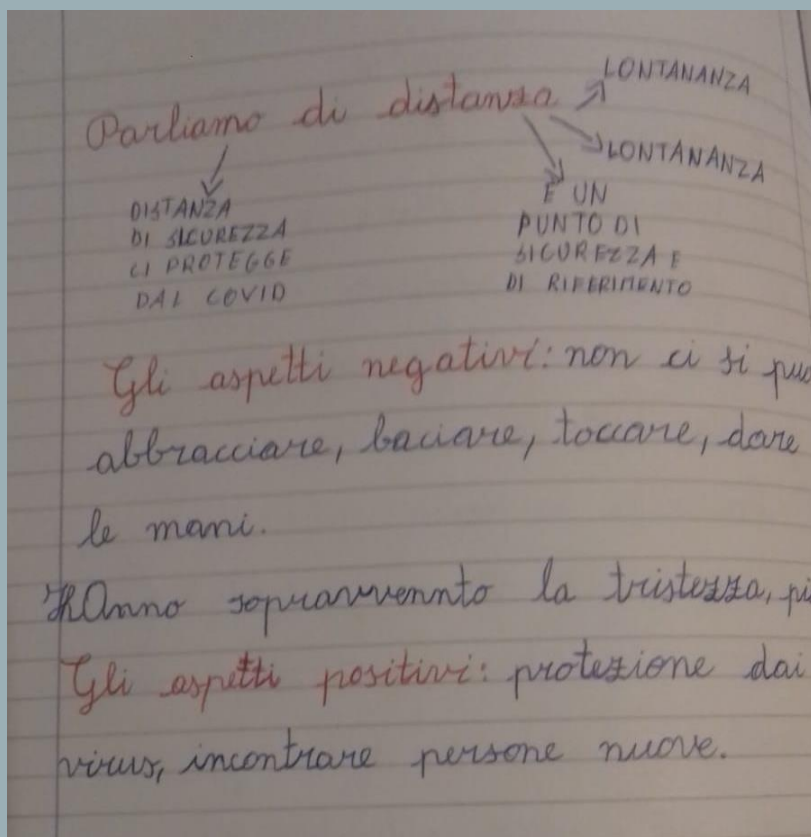 LONTANANZA
Parliamo di distanza
LONTANANZA
DISTANZA
DI SICUREZZA
CI PROTEGGE
DAL COVID
È UN
PUNTO DI
SICUREZZA E
DI RIFERIMENTO
Gli aspetti negativi: non ci si può
abbracciare, baciare, toccare, dare
le mani.
HAnno sopravvennto la tristezza,
Gli aspetti positivi: protezione dai
virus, incontrare persone nuove.